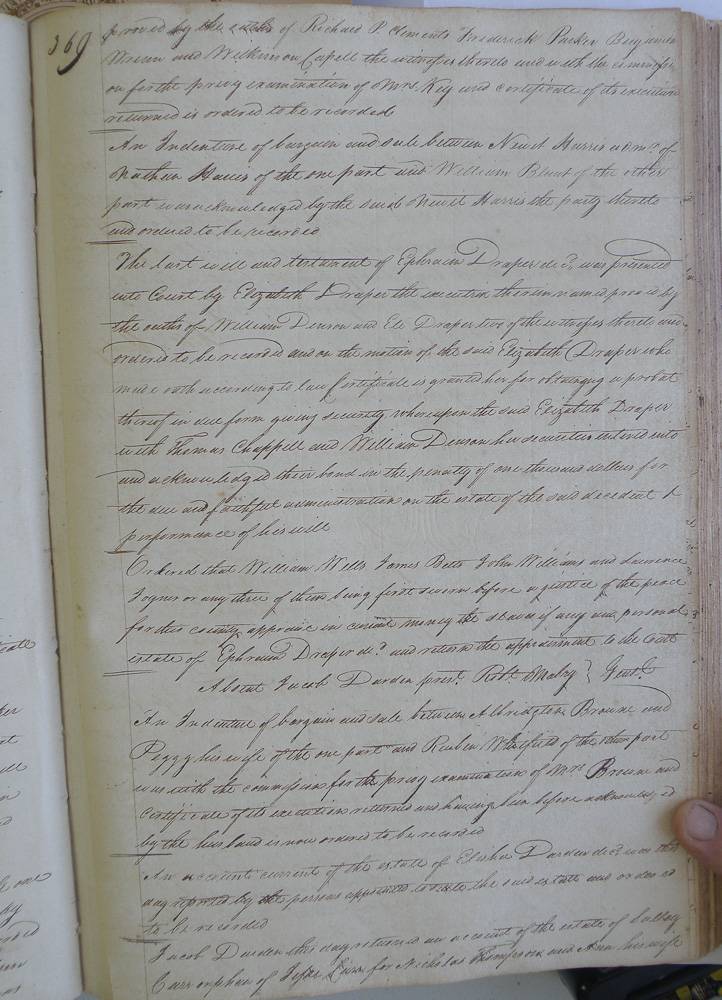 369
proved by the oaths of Richard P. Clements Frederick Parker Benjamin
and Wilkinson Capell the witnesses thereto and with the commissi
on for the privy examination of Mrs Key and certificate of its execution
returned is ordered to be recorded
An Indenture of bargain and sale between Newit Harris admr. of
Nathan Harris of the one part and William Blunt of the other
part was acknowledged by the said Newit Harris the party thereto
and ordered to be recorded
The last will and testament of Ephraim Draper decd. was presented
into Court by Elizabeth Draper the executrix therein named proved by
the oaths of William Denson and Eli Draper two of the witnesses thereto and
ordered to be recorded and on the motion of the said Elizabeth Draper who
made oath according to law Certificate is granted her for obtaining a probat
thereof in due form giving security whereupon the said Elizabeth Draper
with Thomas Chappell and William Denson her securities entered into
and acknowledged their bond in the penalty of one thousand dollars for
the due and faithful administration on the estate of the said decedent &
performance of his will
Ordered that William Wills James Betts John Williams and Lawrence
Joyner or any three of them being first sworn before a justice of the peace
for this county appraise in current money the slaves if any and personal
estate of Ephraim Draper decd. and return the appraisment to the Court
Absent Jacob Darden prest. Robt. Mabry } Gent.
An Indenture of bargain and sale between Albridgton Browne and
Peggy his wife of the one part and Reuben Whitfield of the other part
was with the commission for the privy examination of Mrs Browne and
Certificate of its execution returned and having been before acknowledged
by the husband is now ordered to be recorded
An account current of the estate of Elisha Darden decd. was this
day reported by the persons appointed to settle the said estate and ordered
to be recorded
Jacob Darden this day returned an account of the estate of
Carr orphan of Jesse Carr for Nicholas Thompson and Ann his wife